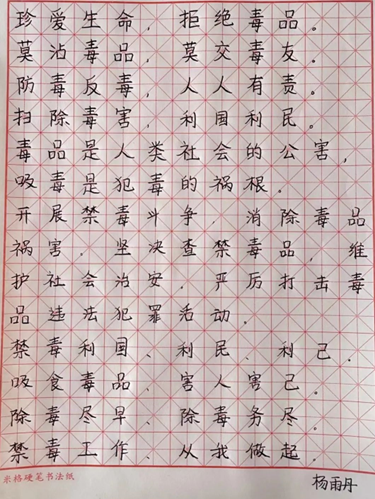 珍爱生命，拒绝毒品。
莫沾毒品，莫交毒友。
防毒反毒，人人有责。
扫除毒害，利国利民。
毒品是人类社会的公害，
吸毒是犯毒的祸根。
开展禁毒斗争，消除毒品
祸害。坚决查禁毒品，维
护社会治安。严厉打击毒
品违法犯罪活动。
禁毒利国、利民、利己。
吸食毒品、害人害己。
除毒尽早、除毒务尽。
禁毒工作、从我做起。
米格硬笔书法纸
杨雨丹